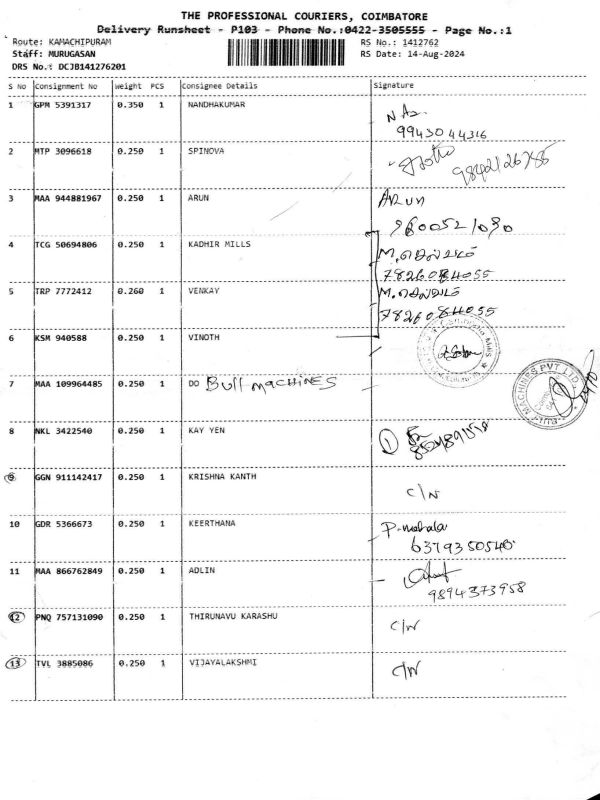 THE PROFESSIONAL COURIERS, COIMBATORE
Delivery Runsheet - P103 - Phone No.:0422-3505555 - Page No.:1
Route: KAMACHIPURAM RS No.: 1412762
Staff: MURUGASAN RS Date: 14-Aug-2024
DRS No.: DCJB141276201
S No Consignment No Weight PCS Consignee Details Signature
1 GPM 5391317 0.350 1 NANDHAKUMAR
9943044316
2 MTP 3096618 0.250 1 SPINOVA
9842126785
3 MAA 944881967 0.250 1 ARUN ARUN
9600521030
4 TCG 50694806 0.250 1 KADHIR MILLS M.செல்வம்
7826084055
5 TRP 7772412 0.260 1 VENKAY M.செல்வம்
7826084055
6 KSM 940588 0.250 1 VINOTH
7 MAA 109964485 0.250 1 DO Bull MACHINES
MACHINES PVT LTD
8 NKL 3422540 0.250 1 KAY YEN 1
9 GGN 911142417 0.250 1 KRISHNA KANTH C/N
10 GDR 5366673 0.250 1 KEERTHANA P-mahala
6379350540
11 MAA 866762849 0.250 1 ADLIN
9894373958
12 PNQ 757131090 0.250 1 THIRUNAVU KARASHU C/N
13 TVL 3885086 0.250 1 VIJAYALAKSHMI C/N